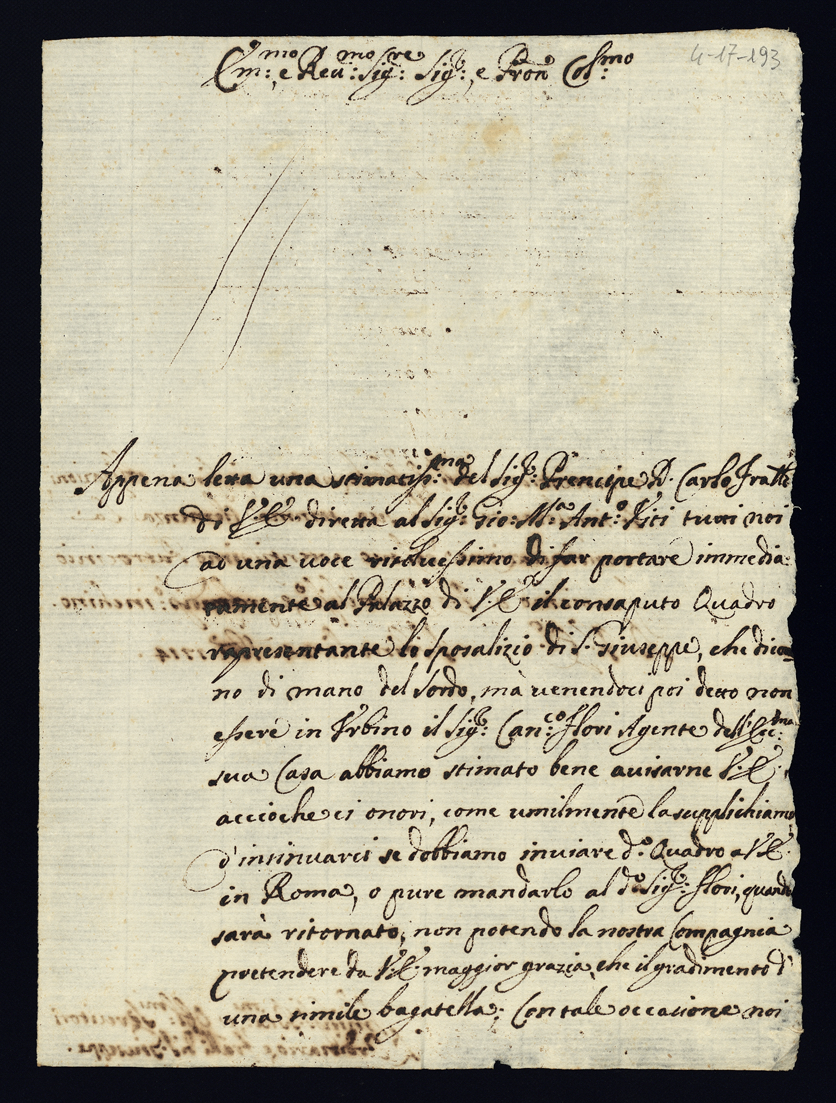 4-17-193
Em:mo e Reu:mo Sig:re Sig:, e Pron Col:mo
Appena letta una stimatiss:ma del Sig:r Prencipe D. Carlo Fratello
di V.E. diretta al Sig:r Gio: M:a Ant:o Viti tutti noi
ad una voce risoluessimo di far portare immedia:
tamente al Palazzo di V.E. il consaputo Quadro
rapresentante lo sposalizio di S. Giuseppe, che dico=
no di mano del Sordo, mà venendoci poi detto non
essere in Vrbino il Sig:r Can:co Flori Agente dell'Ecc:ma
sua Casa abbiamo stimato bene auisarne V.E.,
accioche ci onori, come umilmente la supplichiamo
d'insinuarci se dobbiamo inuiare d:o Quadro a V.E.
in Roma, o pure mandarlo al d:o Sig:r Flori, quando
sarà ritornato, non potendo la nostra Compagnia
pretendere da V.E. maggior grazia, che il gradimento d'
una simile bagatella; Con tale occasione noi